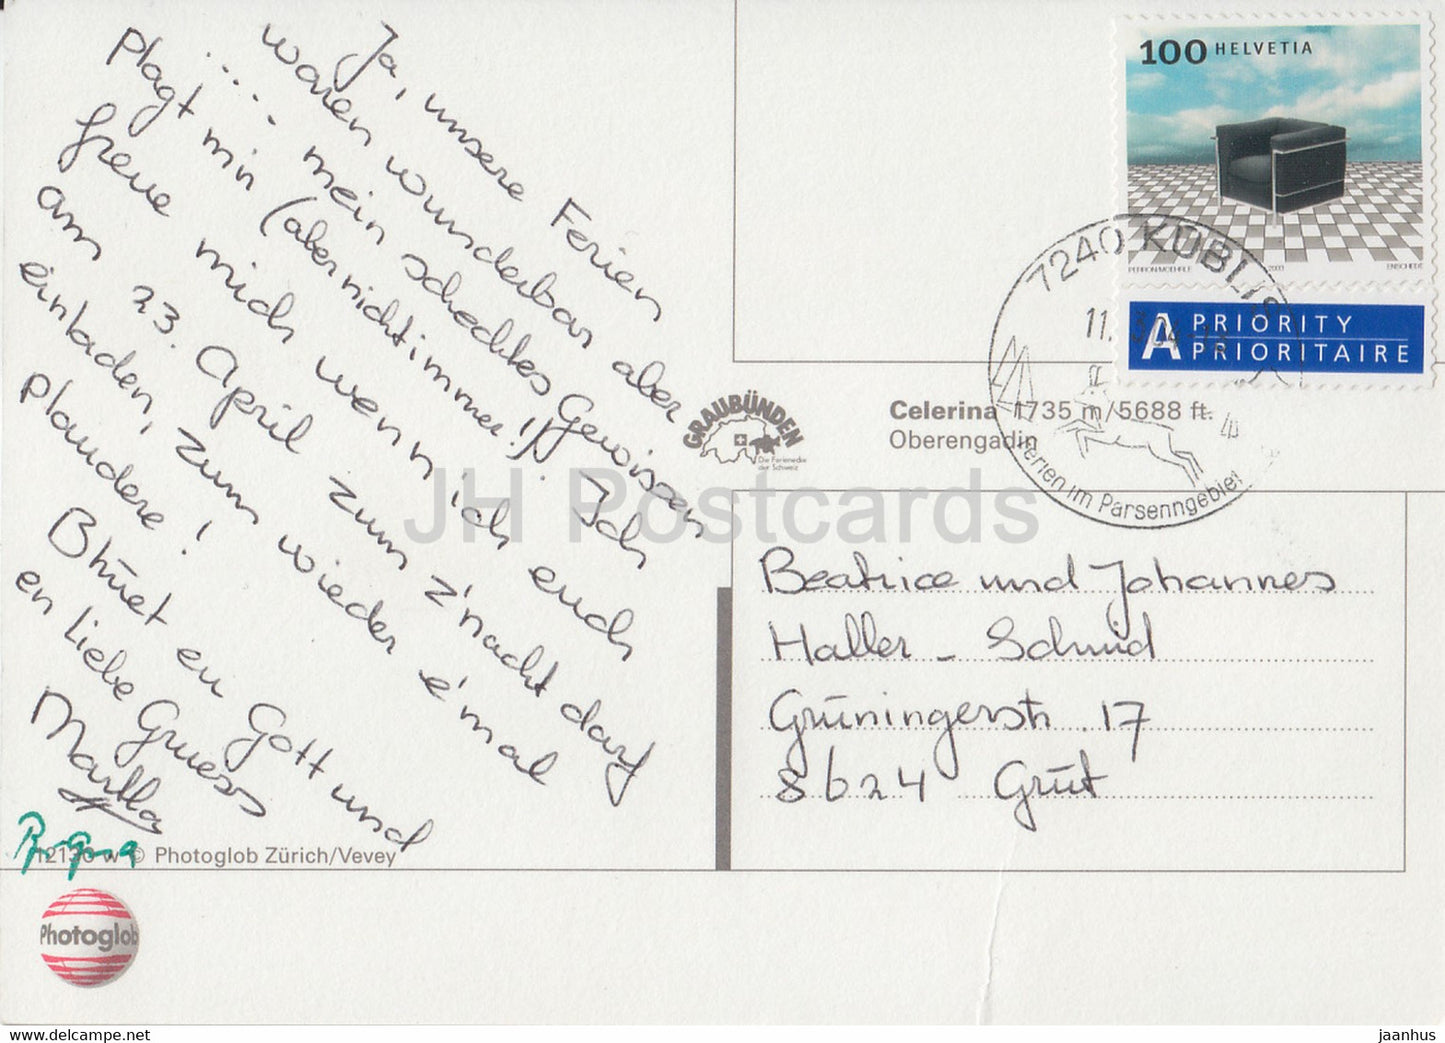 Ja, unsere Ferien
waren wunderbar aber
.... mein schechtes Gewissen
plagt min (aber nicht immer!) Ich
freue mich wenn ich euch
am 23. April zum z'nacht darf
einladen, zum wieder e'mal
plaudere!
Bhüet eu Gott und
en liebe Gruess
Marlla
12130 w © Photoglob Zürich/Vevey
Photoglob
100 HELVETIA
PERRON/MOEHRLE 2003 ENSCHEDE
A PRIORITY
PRIORITAIRE
7240 KÜBLIS
11.
Ferien im Parsenngebiet
GRAUBÜNDEN
Die Ferienecke
der Schweiz
Celerina 1735 m/5688 ft.
Oberengadin
JH Postcards
Beatrice und Johannes
Haller - Schmid
Grüningerstr. 17
8624 Grüt
www.delcampe.net
jaanhus